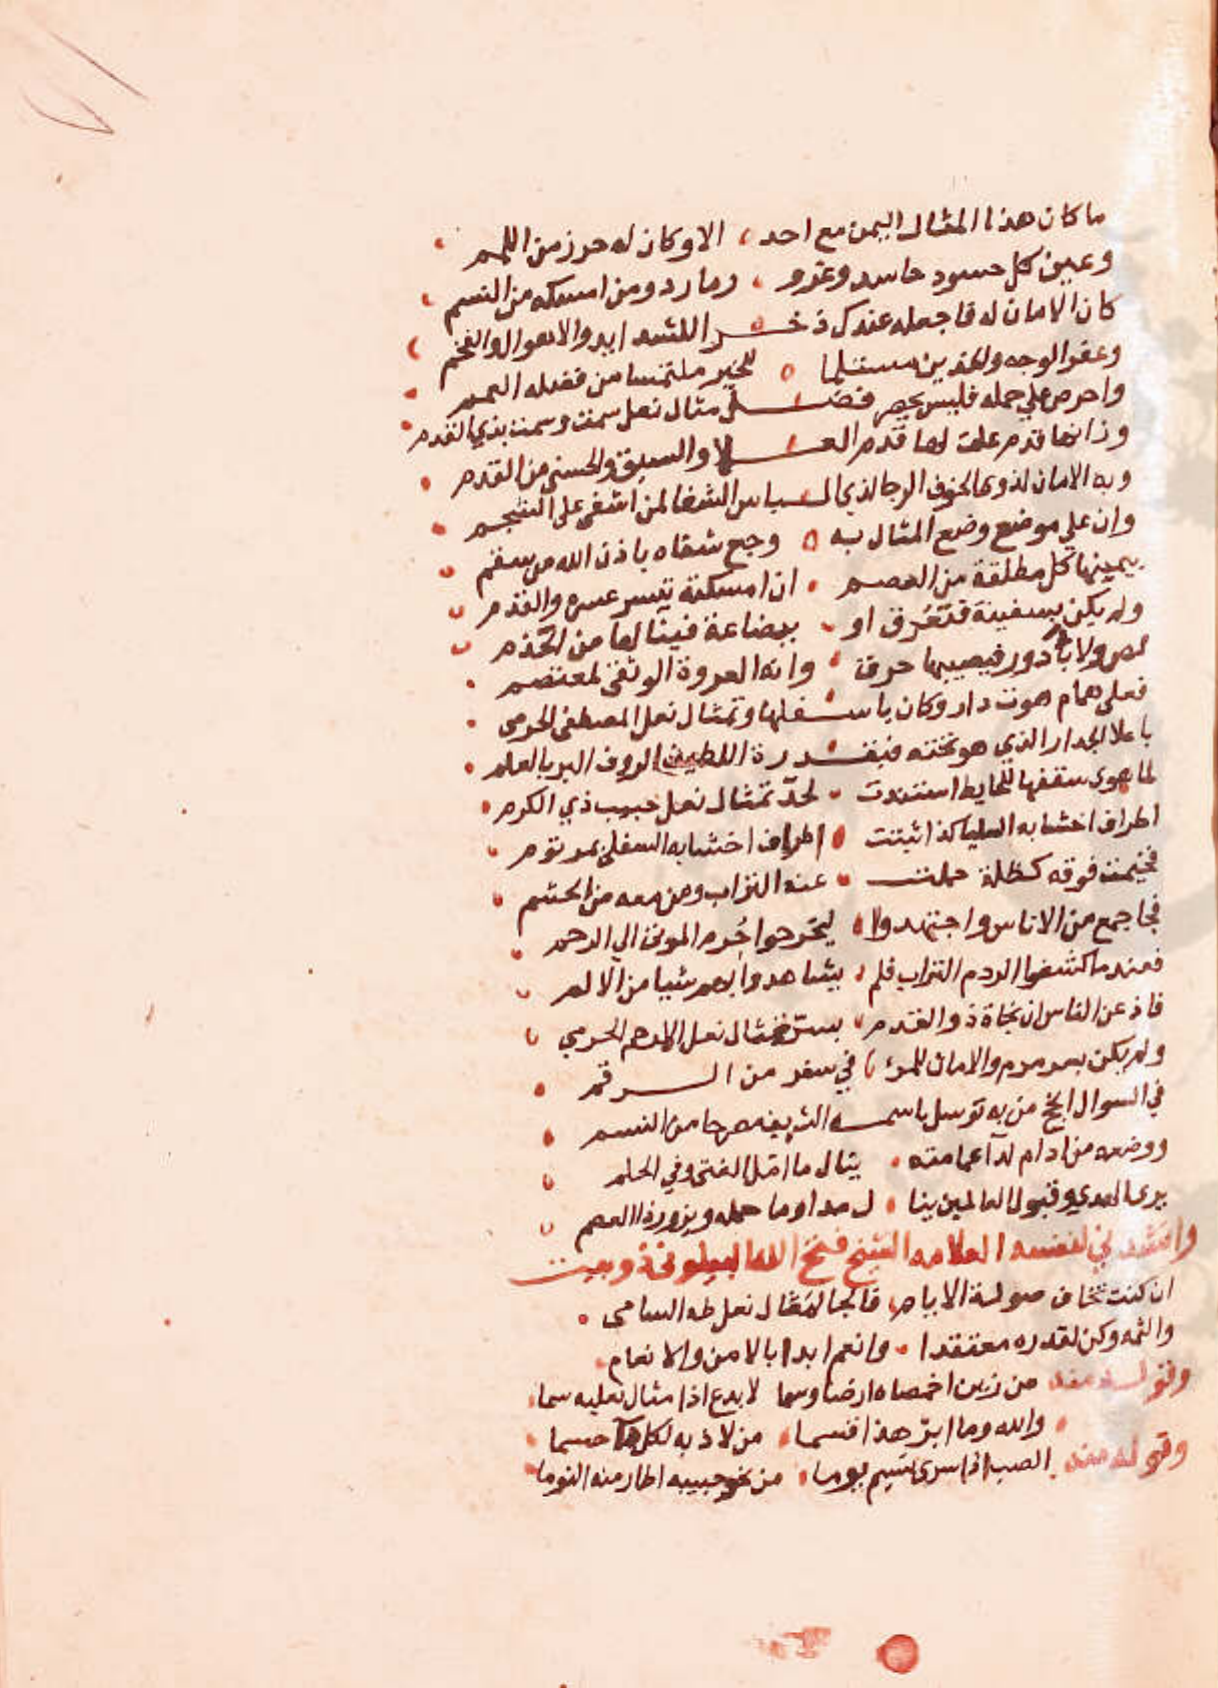 ما كان هذا المثال اليمن مع احد الا وكان له حرز من اللمم
وعين كل حسود حاسد وعدو ومارد ومن امسكه من النسم
كان الامان له فاجعله عندك ذخر اللشدايد والاهوال والفخم
وعفر الوجه والخدين مستلما للخير ملتمسا من فضله العمم
واحرص علي حمله فليس يحصر فضلي مثال نعل سمت وسمت بذي القدم
وزانها قدم علت لها قدم العلا والسبق والحسني من القدم
وبه الامان لذوي الخوف الرجا لذي الباس الشفا لمن اشفي علي
وان علي موضع وضع المثال به وجع شفاه باذن الله من سقم
بيمينها كل مطلقة من العصم ان امسكته تيسر عسره والفدم
ولم يكن بسفينة فتغرق او ببضاعة فينالها من
ولا بدور فيصيبها حرق وانه العروة الوثقي لمعتصم
فعلي همام هوت دار وكان باسفلها وتمثال نعل المصطفي الحرمي
باعلا الجدار الذي هو تحته فبقدرة اللطيف الروف البر بالعلم
لما هوي سقفها للحايط استندت لحد تمثال نعل حبيب ذي الكرم
اطراف اخشابه العليا كذا اثبتت اطراف اخشابه السفلي
فخيمت فوقه كظلة حملت عنه التراب ومن معه من الحشم
فجا جمع من الاناس واجتهدوا ليخرجوا الموتي الي الرحم
فعندما كشفوا الردم التراب فلم يشاهدوا بهم شيا من الالم
فاذعن الناس ان نجاة ذو القدم تمثال نعل الحرمي
ولم يكن والامان للمرء في سفر من
في السوال من به توسل باسمه الشريف من النسم
ووضعه من ادام لدا عمامته ينال ما امل الفتي وفي الحلم
يري الهدي وقبول العالمين بنا مداوما حمله ويزور
وانشدني لنفسه العلامه الشيخ فتح الله البيلوني ذوبيت
ان كنت تخاف صولة الايام فالجا لمثال نعل طه السامي
والثمه وكن لقدره معتقدا وانعم ابدا بالامن والانعام
وقوله منه من زين اخمصاه ارضا وسما لا بدع اذا مثال نعليه سما
والله وما ابر هذا قسما من لاذ به لكل حسما
وقوله منه الصب اذا سري نسيم يوما من نحو حبيبه اطار منه النوما